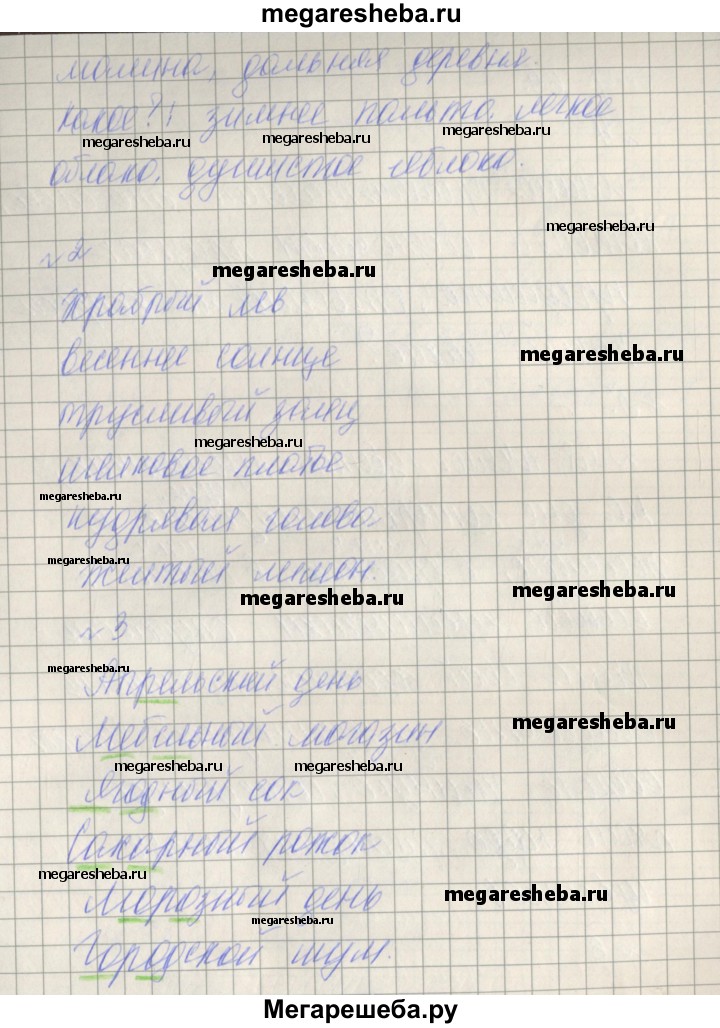 megaresheba.ru
малина, дальняя деревня.
какое?: зимнее пальто, легкое
megaresheba.ru megaresheba.ru megaresheba.ru
облако, душистое яблоко.
megaresheba.ru
№2
megaresheba.ru
Храбрый лев
весеннее солнце
megaresheba.ru
трусливый заяц
megaresheba.ru
шелковое платье
megaresheba.ru
кудрявая голова
megaresheba.ru
желтый лимон.
megaresheba.ru megaresheba.ru
№3
megaresheba.ru
Апрельский день
Мебельный магазин
megaresheba.ru
megaresheba.ru megaresheba.ru
Ягодный сок
Сахарный рожок
megaresheba.ru
Морозный день
megaresheba.ru
megaresheba.ru
Городской шум.
Мегарешеба.ру